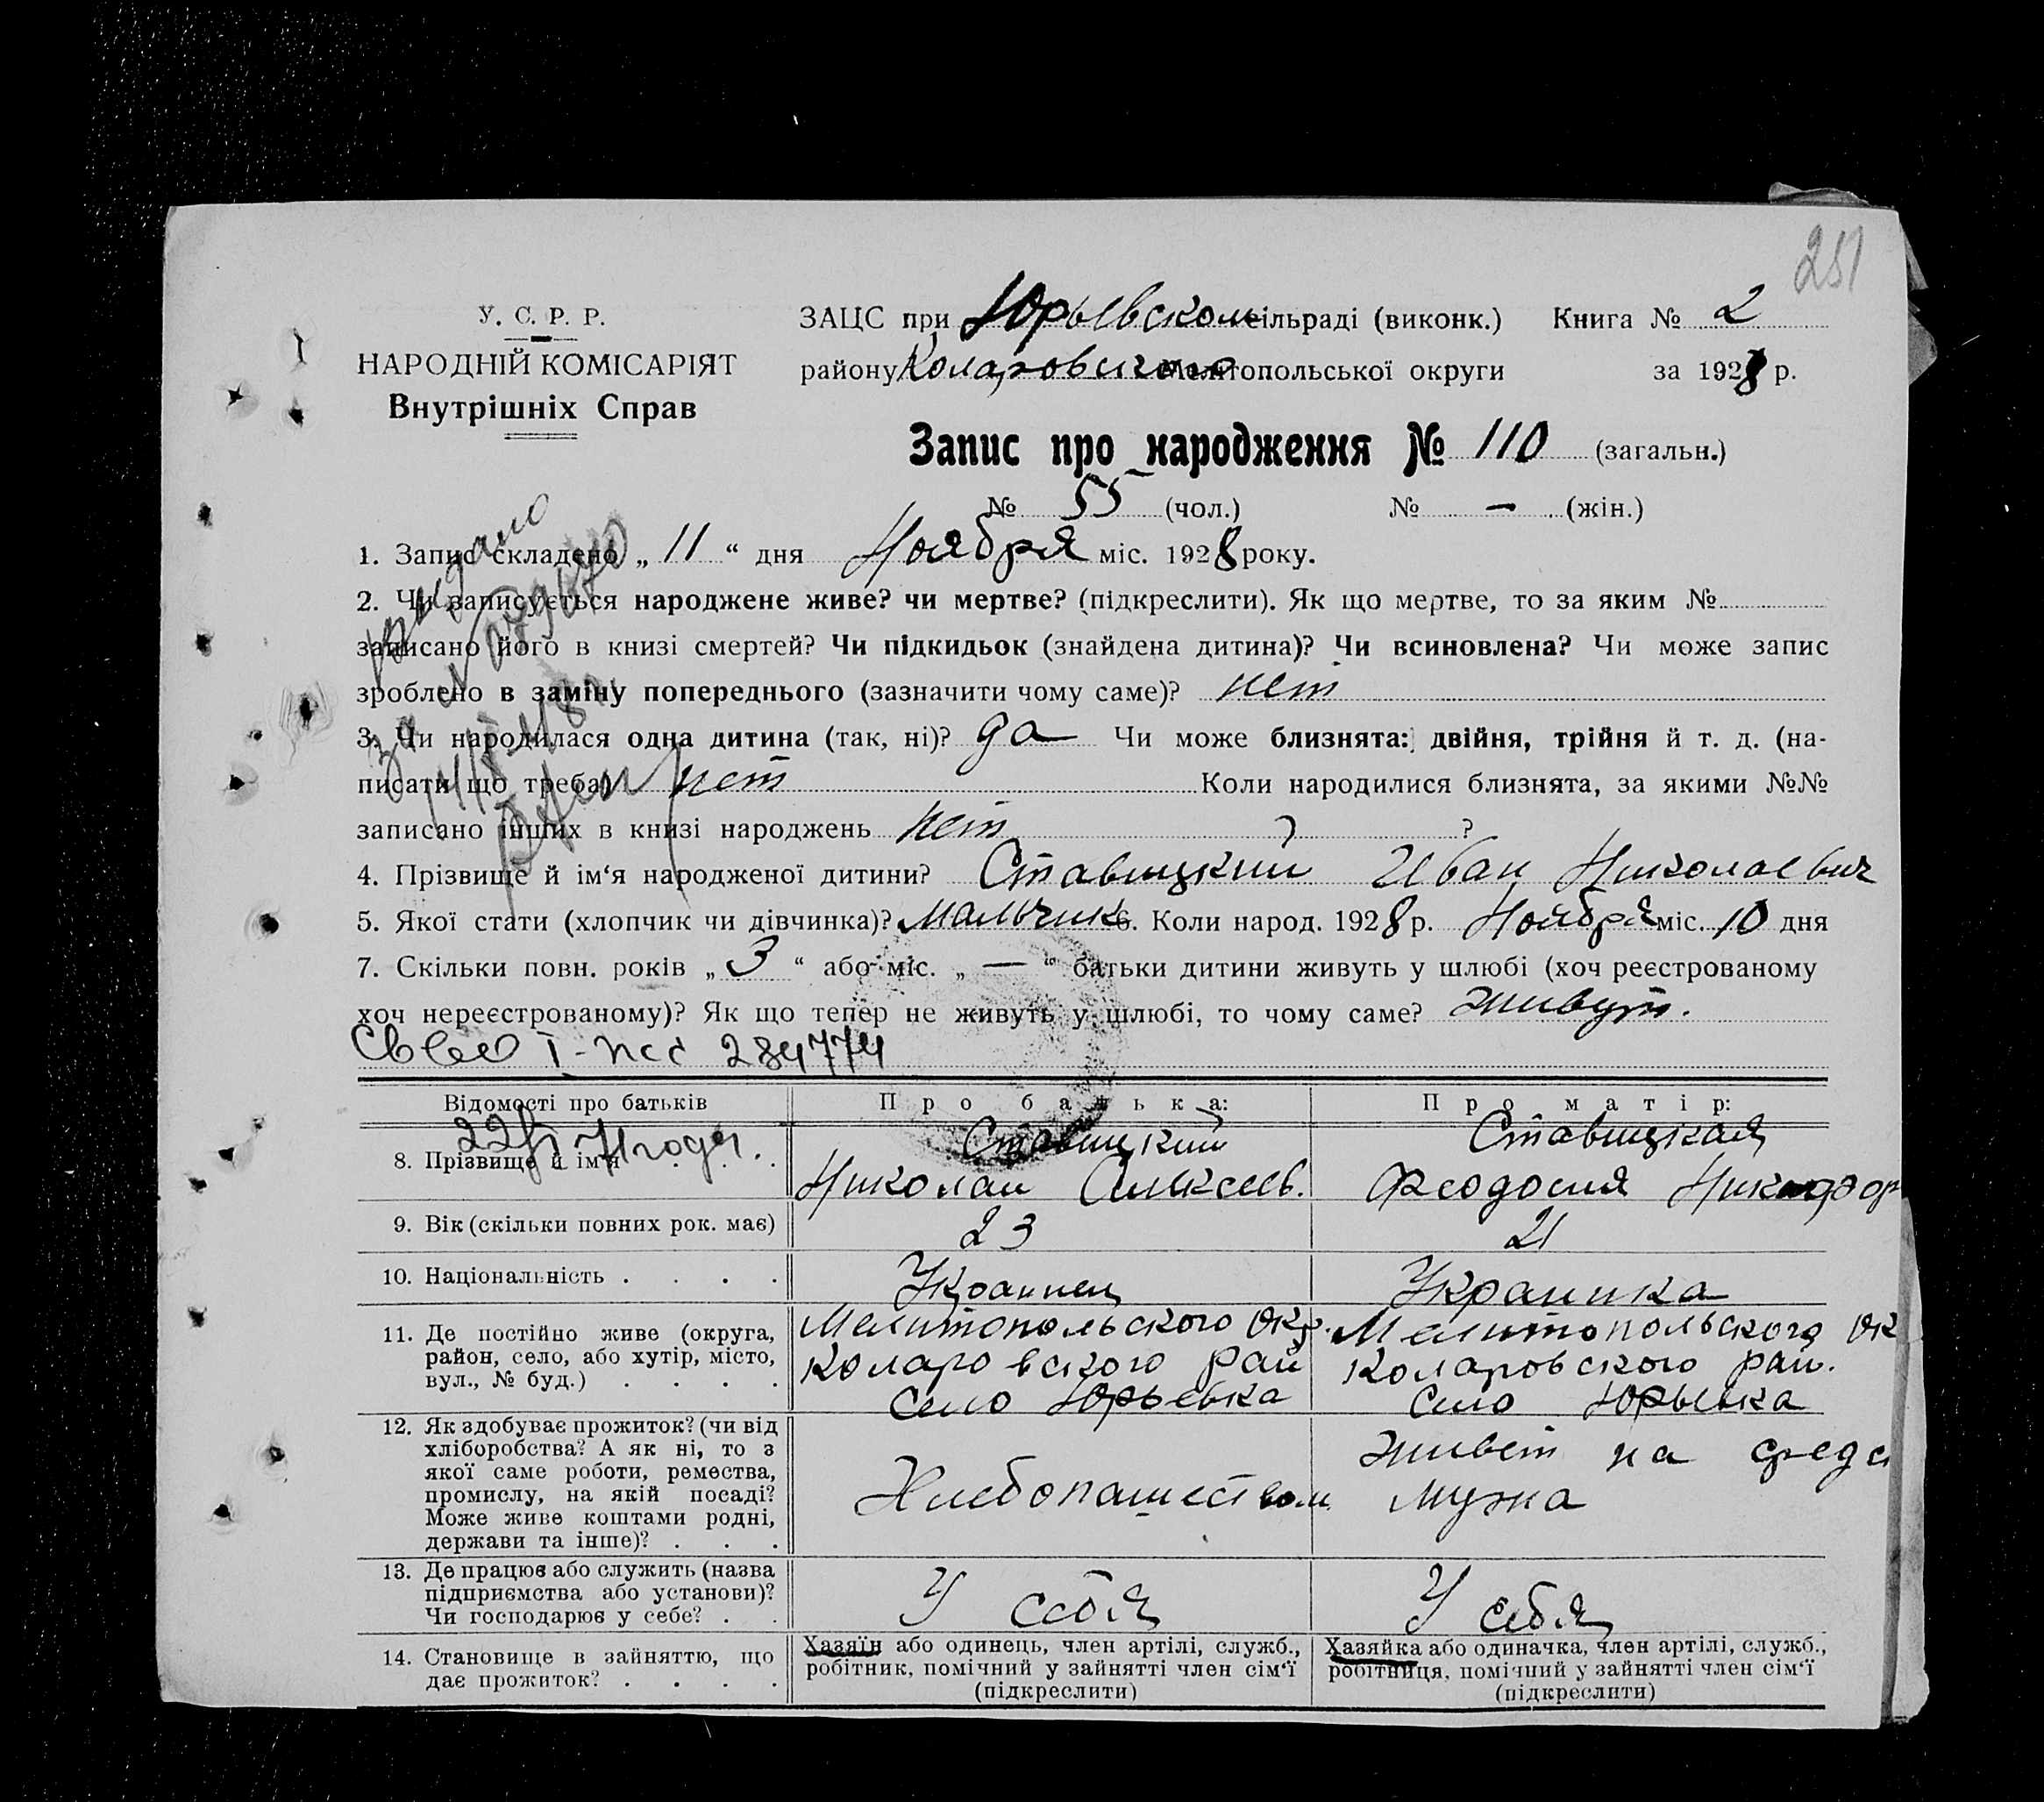 251
У. С. Р. Р.
НАРОДНІЙ КОМІСАРІЯТ
Внутрішніх Справ
ЗАЦС при Юрьевском сільраді (виконк.) Книга № 2
району Коларовского Мелітопольської округи за 1928 р.
Запис про народження № 110 (загальн.)
№ 55 (чол.) № — (жін.)
1. Запис складено „ 11 “ дня Ноября міс. 1928 року.
2. Чи записується народжене живе? чи мертве? (підкреслити). Як що мертве, то за яким №
записано його в книзі смертей? Чи підкидьок (знайдена дитина)? Чи всиновлена? Чи може запис
зроблено в заміну попереднього (зазначити чому саме)? нет
3. Чи народилася одна дитина (так, ні)? да Чи може близнята: двійня, трійня й т. д. (на-
писати що треба) нет Коли народилися близнята, за якими №№
записано інших в книзі народжень нет ?
4. Прізвище й ім‘я народженої дитини? Ставицкий Иван Николаевич
5. Якої стати (хлопчик чи дівчинка)? Мальчик 6. Коли народ. 1928 р. Ноября міс. 10 дня
7. Скільки повн. років „ 3 “ або міс. „ — “ батьки дитини живуть у шлюбі (хоч реєстрованому
хоч нереєстрованому)? Як що тепер не живуть у шлюбі, то чому саме? живут.
284774
Відомості про батьків
Про батька:
Про матір:
8. Прізвище й ім‘я . . .
Ставицкий
Николай Алексеев.
Ставицкая
Феодосия Никандор
9. Вік (скільки повних рок. має)
23
21
10. Національність . . . .
Украинец
Украинка
11. Де постійно живе (округа,
район, село, або хутір, місто,
вул., № буд.) . . . .
Мелитопольского Окр.
Коларовского рай
Село Юрьевка
Мелитопольского Ок
Коларовского рай.
Село Юрьевка
12. Як здобуває прожиток? (чи від
хліборобства? А як ні, то з
якої саме роботи, ремества,
промислу, на якій посаді?
Може живе коштами родні,
держави та інше)? . . .
Хлебопашеством
живет на средс
мужа
13. Де працює або служить (назва
підприємства або установи)?
Чи господарює у себе? . .
У себя
У себя
14. Становище в зайняттю, що
дає прожиток? . . . .
Хазяїн або одинець, член артілі, служб.,
робітник, помічний у зайнятті член сім‘ї
(підкреслити)
Хазяйка або одиначка, член артілі, служб.,
робітниця, помічний у зайнятті член сім‘ї
(підкреслити)